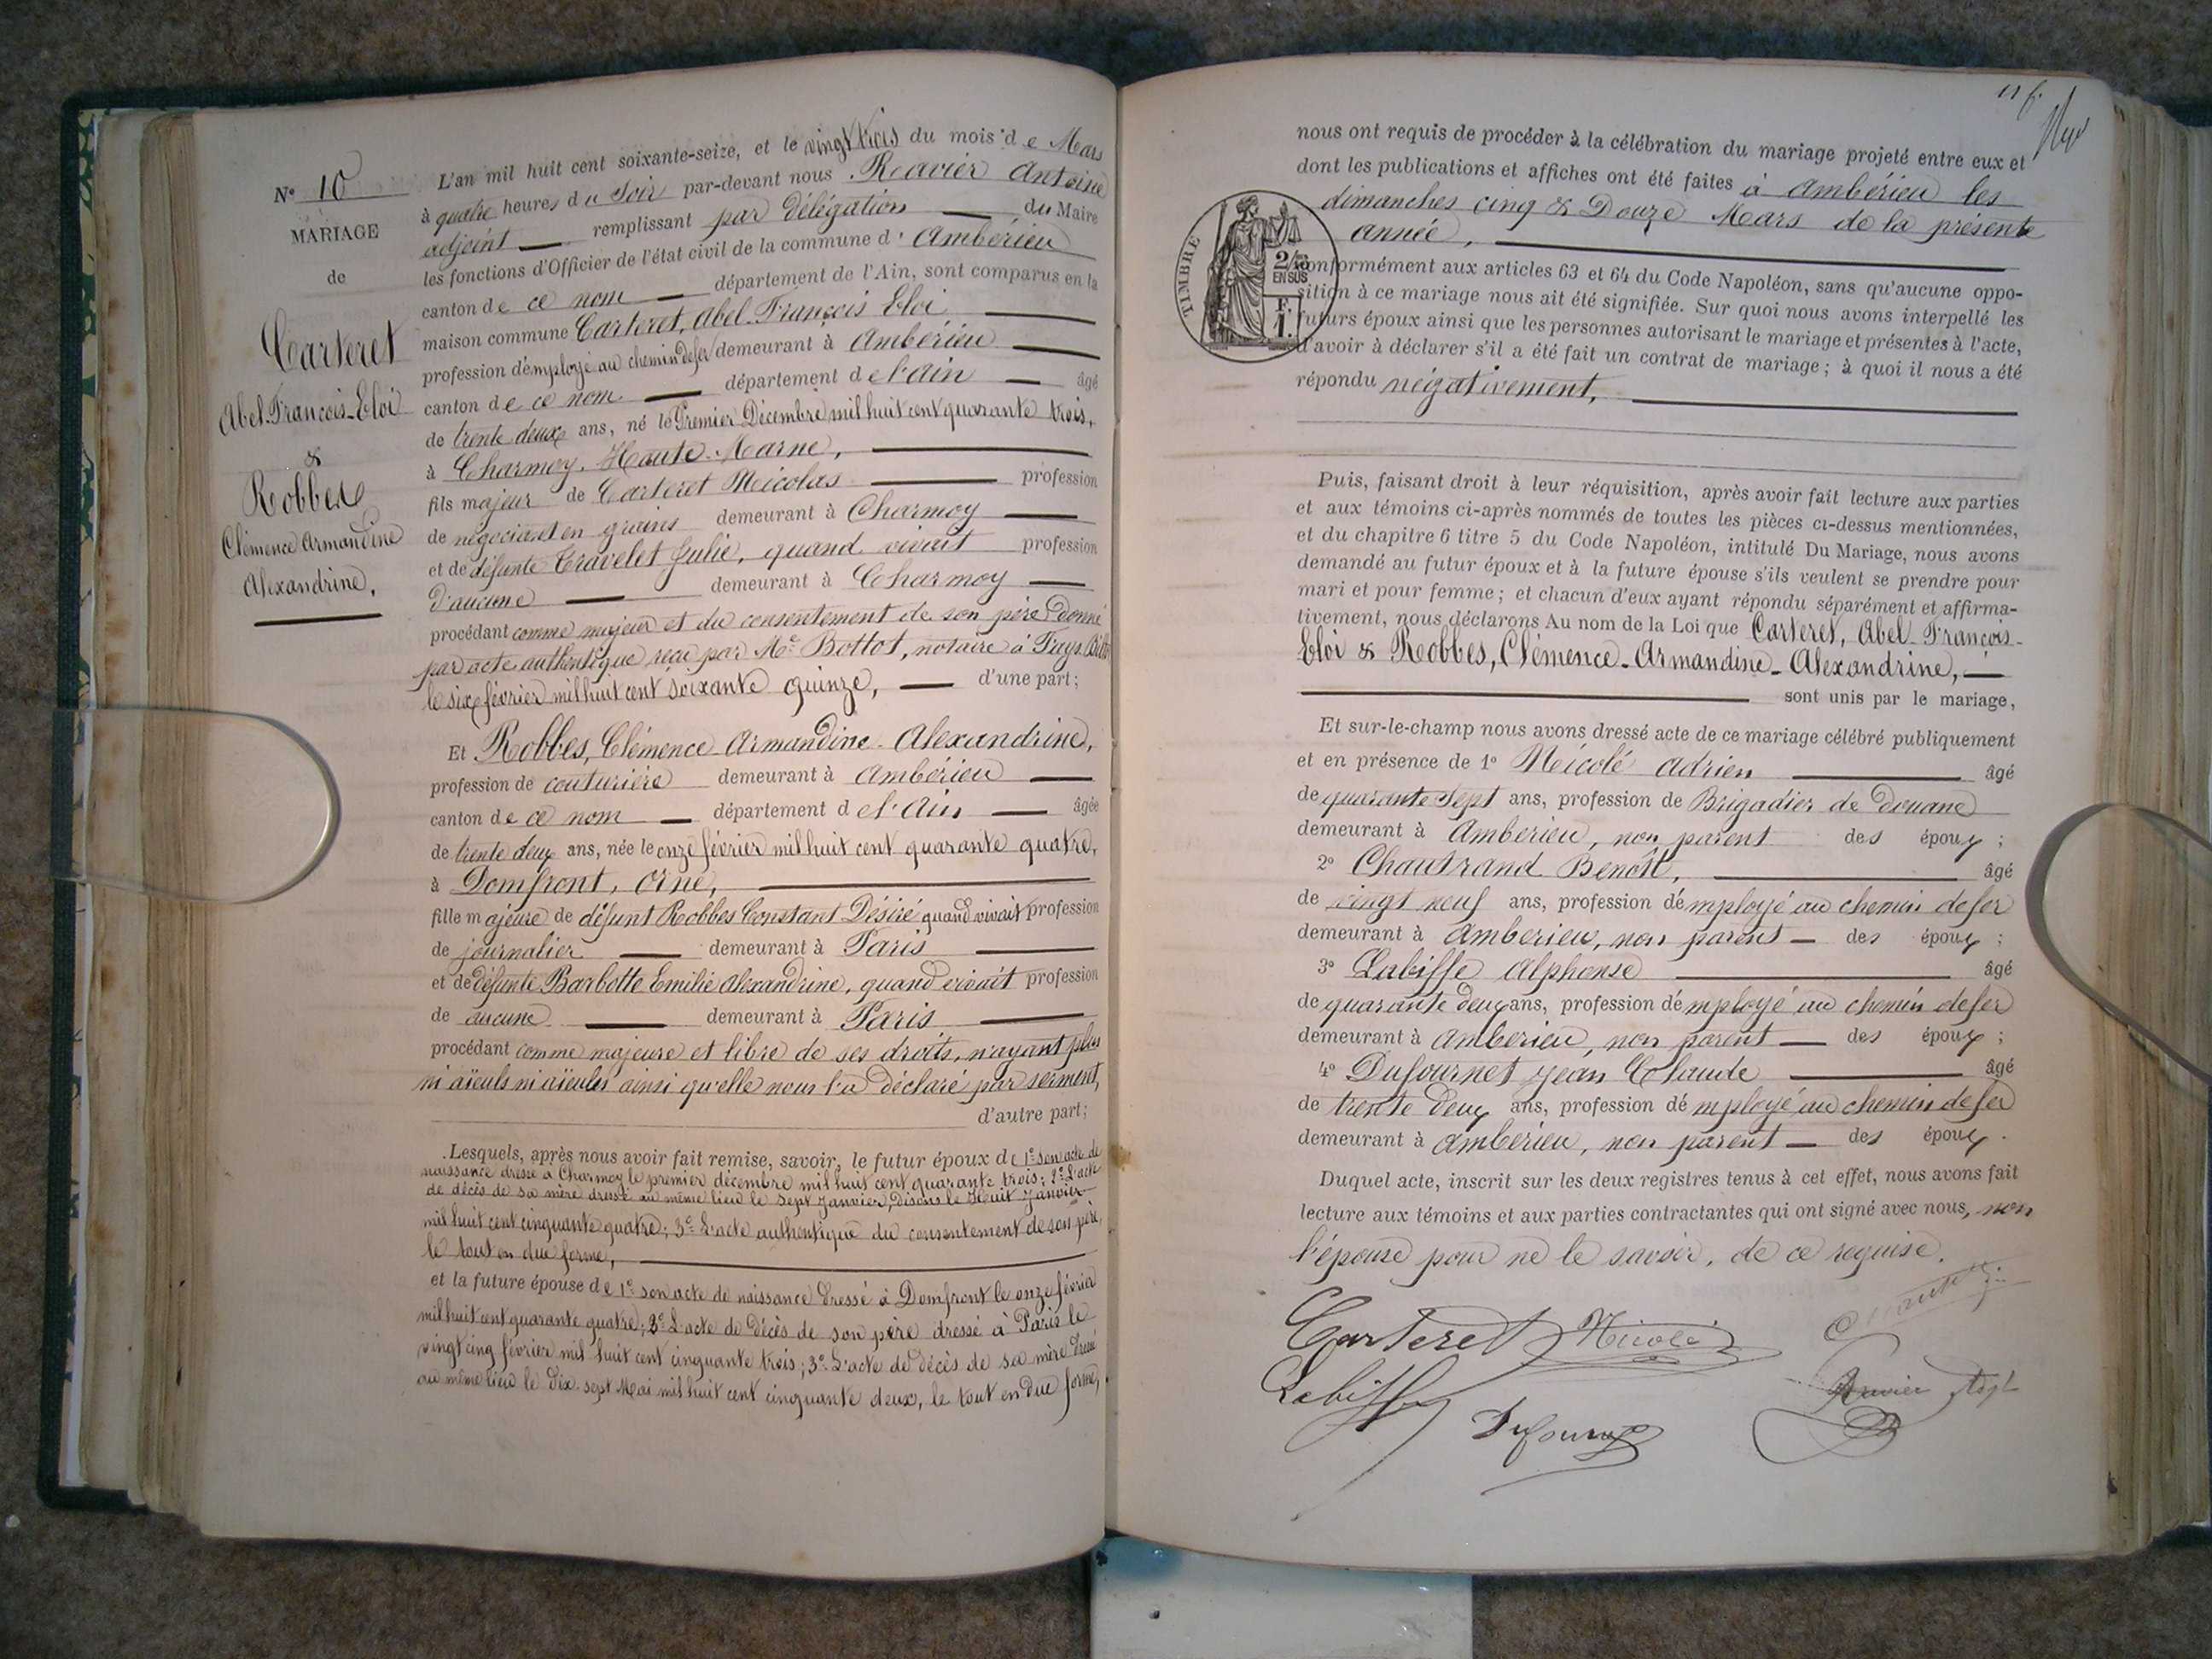 N° 10
MARIAGE
de
Carteret
Abel-François-Eloi
&
Robbes
Clémence Armandine
Alexandrine.
L'an mil huit cent soixante-seize, et le vingt trois du mois de Mars
à quatre heures du Soir par-devant nous Ravier Antoine
adjoint remplissant par délégation du Maire
les fonctions d'Officier de l'état civil de la commune d'Ambérieu
canton de ce nom département de l'Ain, sont comparus en la
maison commune Carteret, Abel-François Eloi
profession d'employé au chemin de fer demeurant à Ambérieu
canton de ce nom département de l'ain âgé
de trente deux ans, né le Premier Décembre mil huit cent quarante trois,
à Charmoy, Haute-Marne,
fils majeur de Carteret Nicolas profession
de négociant en grains demeurant à Charmoy
et de défunte Travelet Julie, quand vivait profession
d'aucune demeurant à Charmoy
procédant comme majeur et du consentement de son père donné
par acte authentique reçu par Me Bottot, notaire à Fays-Billot
le six février mil huit cent soixante quinze, d'une part;
Et Robbes, Clémence-Armandine-Alexandrine,
profession de couturière demeurant à Ambérieu
canton de ce nom département de l'Ain âgée
de trente deux ans, née le onze février mil huit cent quarante quatre,
à Domfront, Orne,
fille majeure de défunt Robbes Constant Désiré quand vivait profession
de journalier demeurant à Paris
et de défunte Barbotte Emilie Alexandrine, quand vivait profession
de aucune demeurant à Paris
procédant comme majeure et libre de ses droits, n'ayant plus
ni aïeuls ni aïeules ainsi qu'elle nous l'a déclaré par serment,
d'autre part;
Lesquels, après nous avoir fait remise, savoir, le futur époux de 1° son acte de
naissance dressé à Charmoy le premier décembre mil huit cent quarante trois; 2° L'acte
de décès de sa mère dressé au même lieu le sept Janvier, disons le Huit Janvier
mil huit cent cinquante quatre; 3° L'acte authentique du consentement de son père,
le tout en due forme,
et la future épouse de 1° son acte de naissance dressé à Domfront le onze février
mil huit cent quarante quatre; 2° L'acte de décès de son père dressé à Paris le
vingt cinq février mil huit cent cinquante trois; 3° L'acte de décès de sa mère dressé
au même lieu le dix-sept Mai mil huit cent cinquante deux, le tout en due forme,
nous ont requis de procéder à la célébration du mariage projeté entre eux et
dont les publications et affiches ont été faites à Ambérieu les
dimanches cinq & Douze Mars de la présente
année,
TIMBRE
2/10
EN SUS
F.
1.
conformément aux articles 63 et 64 du Code Napoléon, sans qu'aucune oppo-
sition à ce mariage nous ait été signifiée. Sur quoi nous avons interpellé les
futurs époux ainsi que les personnes autorisant le mariage et présentes à l'acte,
d'avoir à déclarer s'il a été fait un contrat de mariage; à quoi il nous a été
répondu négativement,
Puis, faisant droit à leur réquisition, après avoir fait lecture aux parties
et aux témoins ci-après nommés de toutes les pièces ci-dessus mentionnées,
et du chapitre 6 titre 5 du Code Napoléon, intitulé Du Mariage, nous avons
demandé au futur époux et à la future épouse s'ils veulent se prendre pour
mari et pour femme; et chacun d'eux ayant répondu séparément et affirma-
tivement, nous déclarons Au nom de la Loi que Carteret, Abel-François-
Eloi & Robbes, Clémence-Armandine-Alexandrine,
sont unis par le mariage,
Et sur-le-champ nous avons dressé acte de ce mariage célébré publiquement
et en présence de 1° Nicolé Adrien âgé
de quarante Sept ans, profession de Brigadier de douane
demeurant à Ambérieu, non parent des époux;
2° Chautrand Benoît, âgé
de vingt neuf ans, profession d'employé au chemin de fer
demeurant à Ambérieu, non parent des époux;
3° Labiffe Alphonse âgé
de quarante deux ans, profession d'employé au chemin de fer
demeurant à Ambérieu, non parent des époux;
4° Dufournet Jean Claude âgé
de trente deux ans, profession d'employé au chemin de fer
demeurant à Ambérieu, non parent des époux.
Duquel acte, inscrit sur les deux registres tenus à cet effet, nous avons fait
lecture aux témoins et aux parties contractantes qui ont signé avec nous, non
l'épouse pour ne le savoir, de ce requise.
Carteret Nicolé
Labiffe
Ravier Adjt